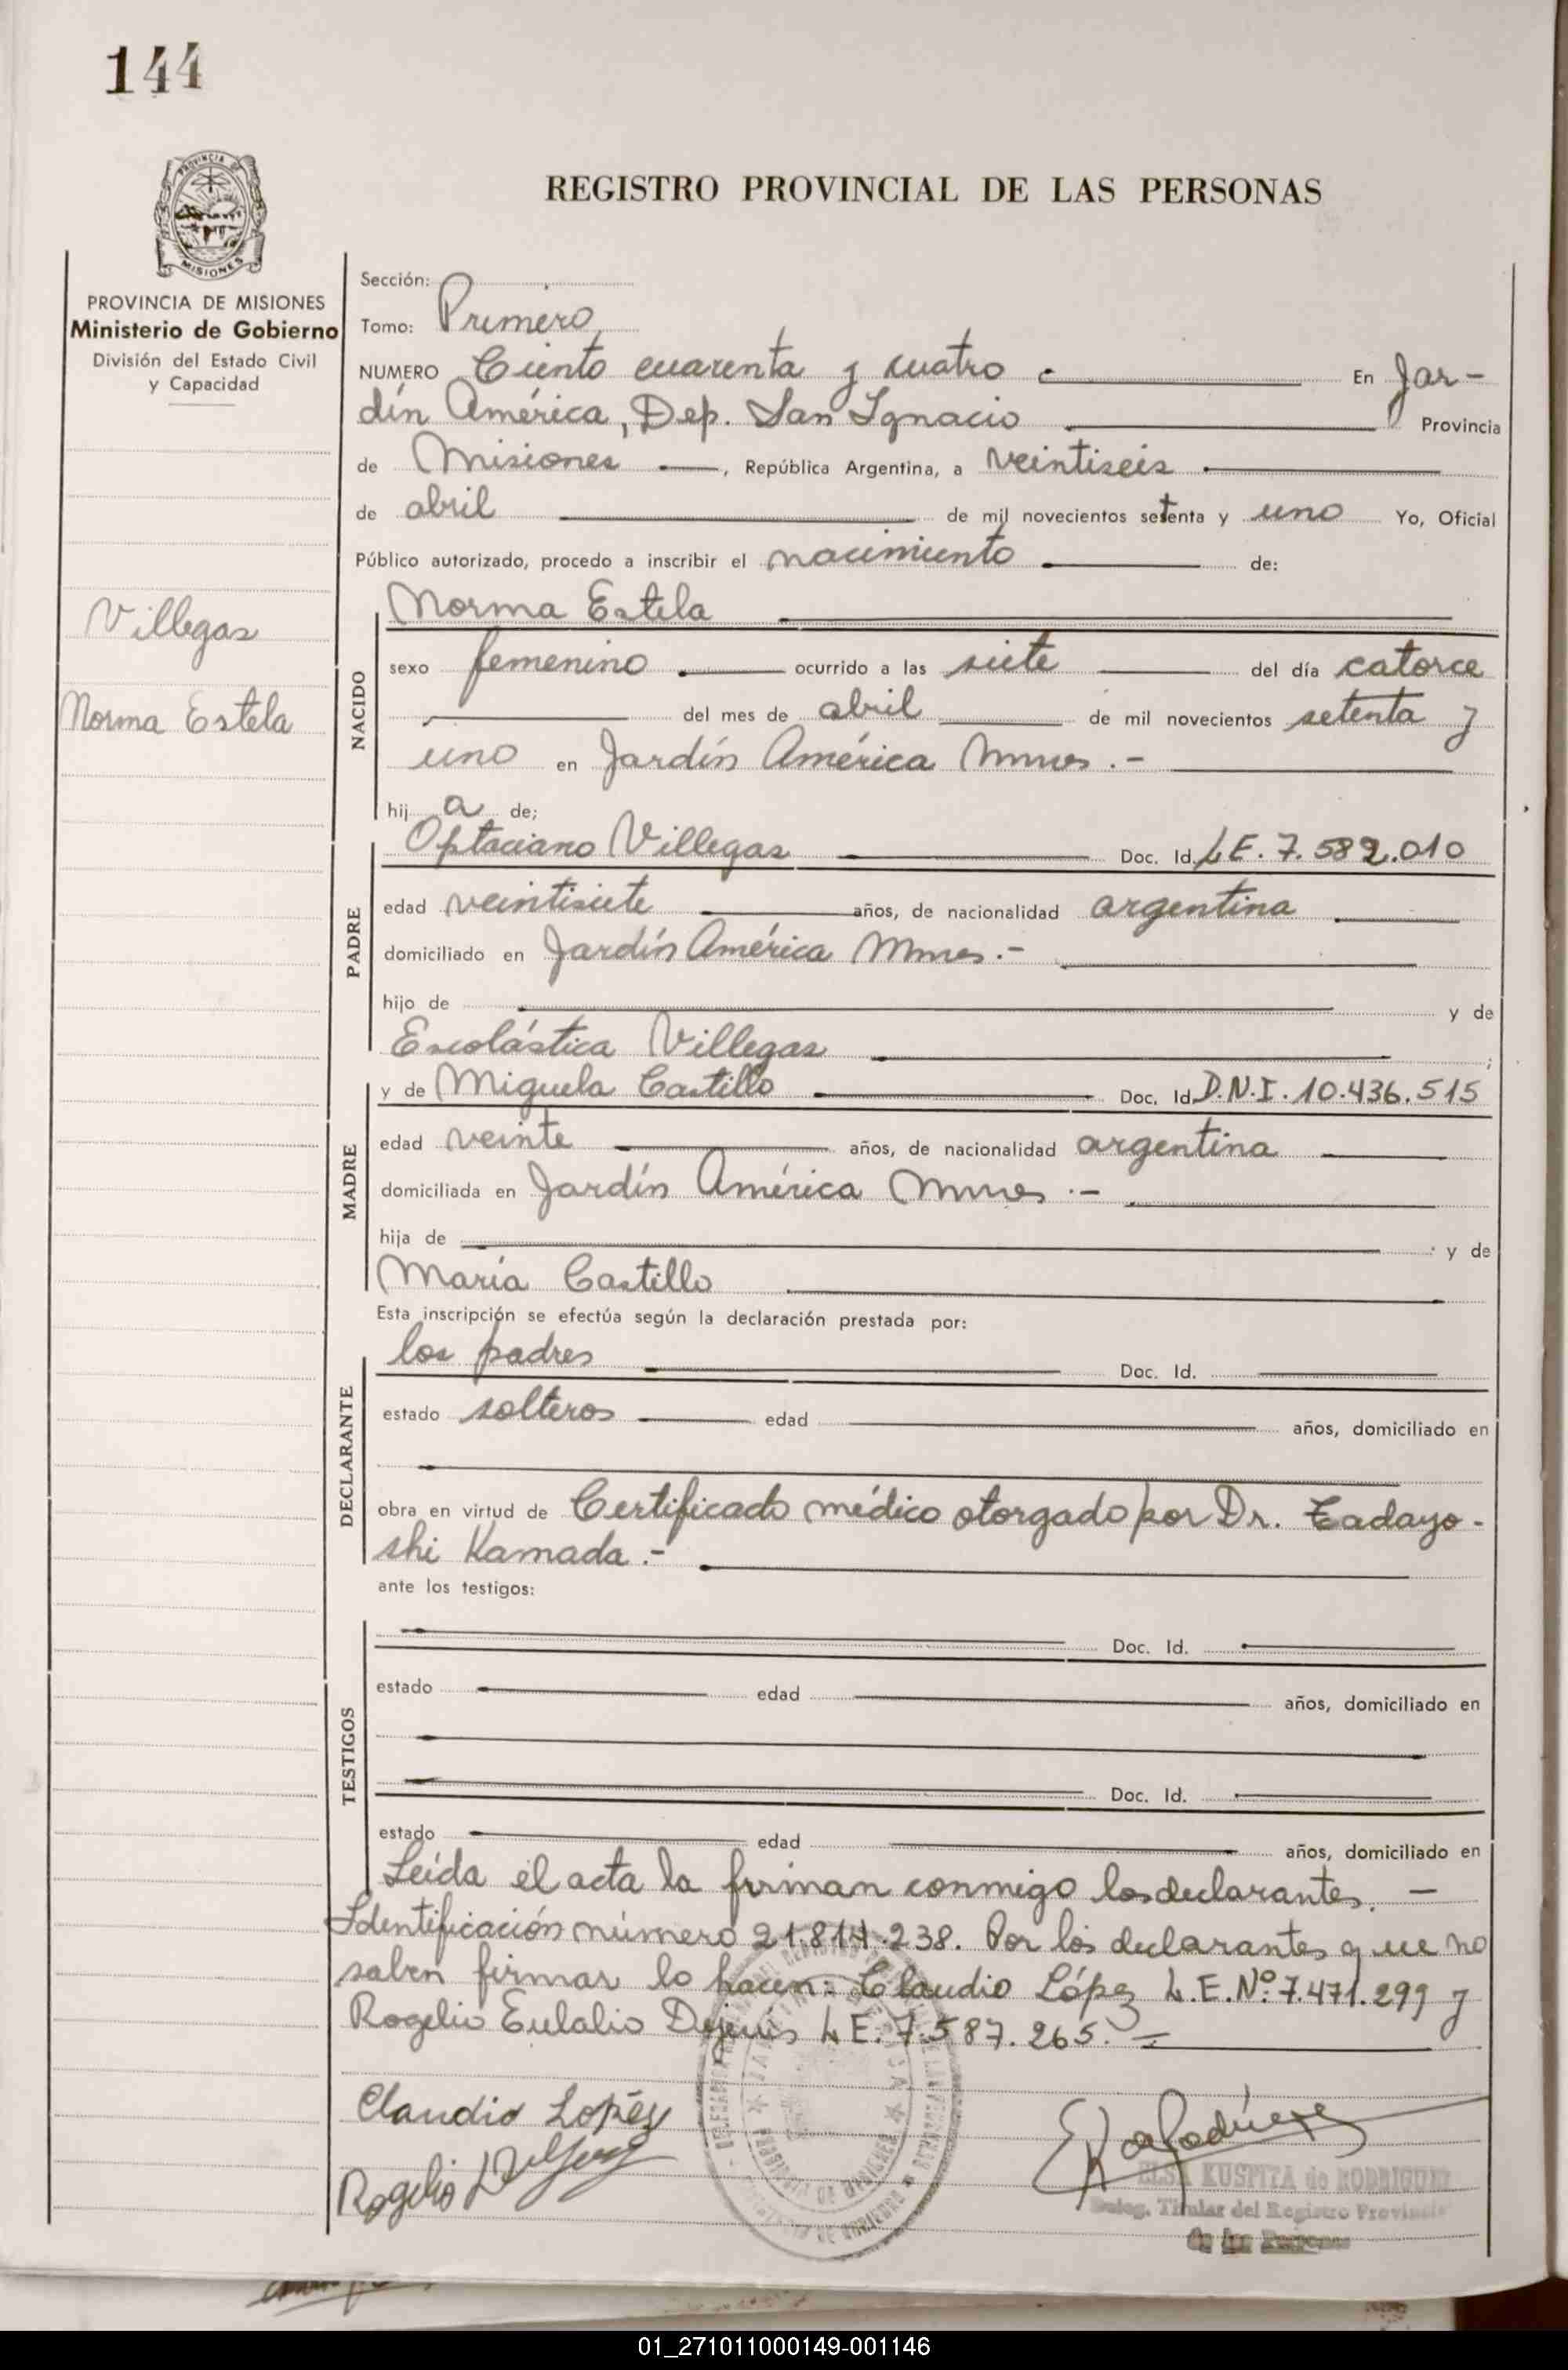 144
PROVINCIA DE MISIONES
Ministerio de Gobierno
División del Estado Civil
y Capacidad
Villegas
Norma Estela
REGISTRO PROVINCIAL DE LAS PERSONAS
Sección:
Tomo: Primero
NUMERO Ciento cuarenta y cuatro En Jar-
dín América, Dep. San Ignacio Provincia
de Misiones, República Argentina, a veintiseis
de abril de mil novecientos setenta y uno Yo, Oficial
Público autorizado, procedo a inscribir el nacimiento de:
Norma Estela
NACIDO
sexo femenino ocurrido a las siete del día catorce
del mes de abril de mil novecientos setenta y
uno en Jardín América Mnes.-
hij a de;
Optaciano Villegas Doc. Id. L.E. 7.582.010
PADRE
edad veintisiete años, de nacionalidad argentina
domiciliado en Jardín América Mnes.-
hijo de y de
Escolástica Villegas ;
y de Miguela Castillo Doc. Id. D.N.I. 10.436.515
MADRE
edad veinte años, de nacionalidad argentina
domiciliada en Jardín América Mnes.-
hija de y de
María Castillo
Esta inscripción se efectúa según la declaración prestada por:
los padres Doc. Id.
DECLARANTE
estado solteros edad años, domiciliado en
obra en virtud de Certificado médico otorgado por Dr. Tadayo-
shi Kamada.-
ante los testigos:
Doc. Id.
TESTIGOS
estado edad años, domiciliado en
Doc. Id.
estado edad años, domiciliado en
Leída el acta la firman conmigo los declarantes.-
Identificación número 21.814.238. Por los declarantes que no
saben firmar lo hacen: Claudio López L.E. Nº 7.471.299 y
Rogelio Eulalio L.E. 7.587.265.=
Claudio López
Rogelio
ELSA KUSPITA de RODRIGUEZ
Deleg. Titular del Registro Provincial
de las Personas
01_271011000149-001146